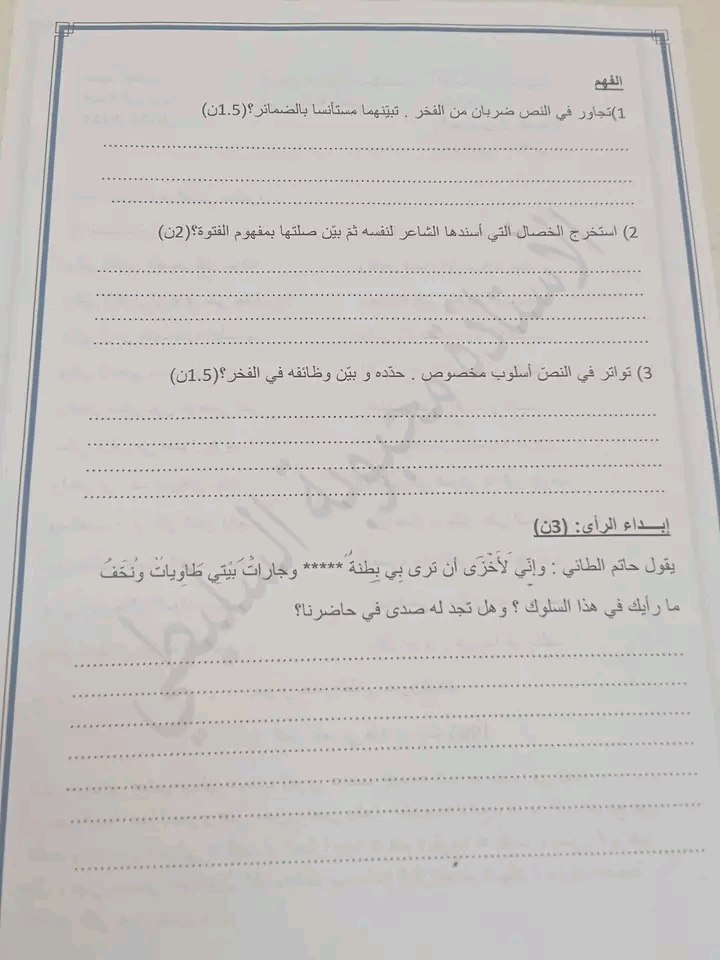 الفهم
1)تجاور في النص ضربان من الفخر . تبيّنهما مستأنسا بالضمائر؟(1.5ن)
2) استخرج الخصال التي أسندها الشاعر لنفسه ثمّ بيّن صلتها بمفهوم الفتوة؟(2ن)
3) تواتر في النصّ أسلوب مخصوص . حدّده و بيّن وظائفه في الفخر؟(1.5ن)
إبـداء الرأي: (3ن)
يقول حاتم الطائي : وإنّي لَأَخْزَى أن ترى بِي بِطنةٌ ***** وجاراتُ بَيْتِي طَاوِياتٌ ونُحَّفُ
ما رأيك في هذا السلوك ؟ وهل تجد له صدى في حاضرنا؟
الأستاذة محبوبة السليطي